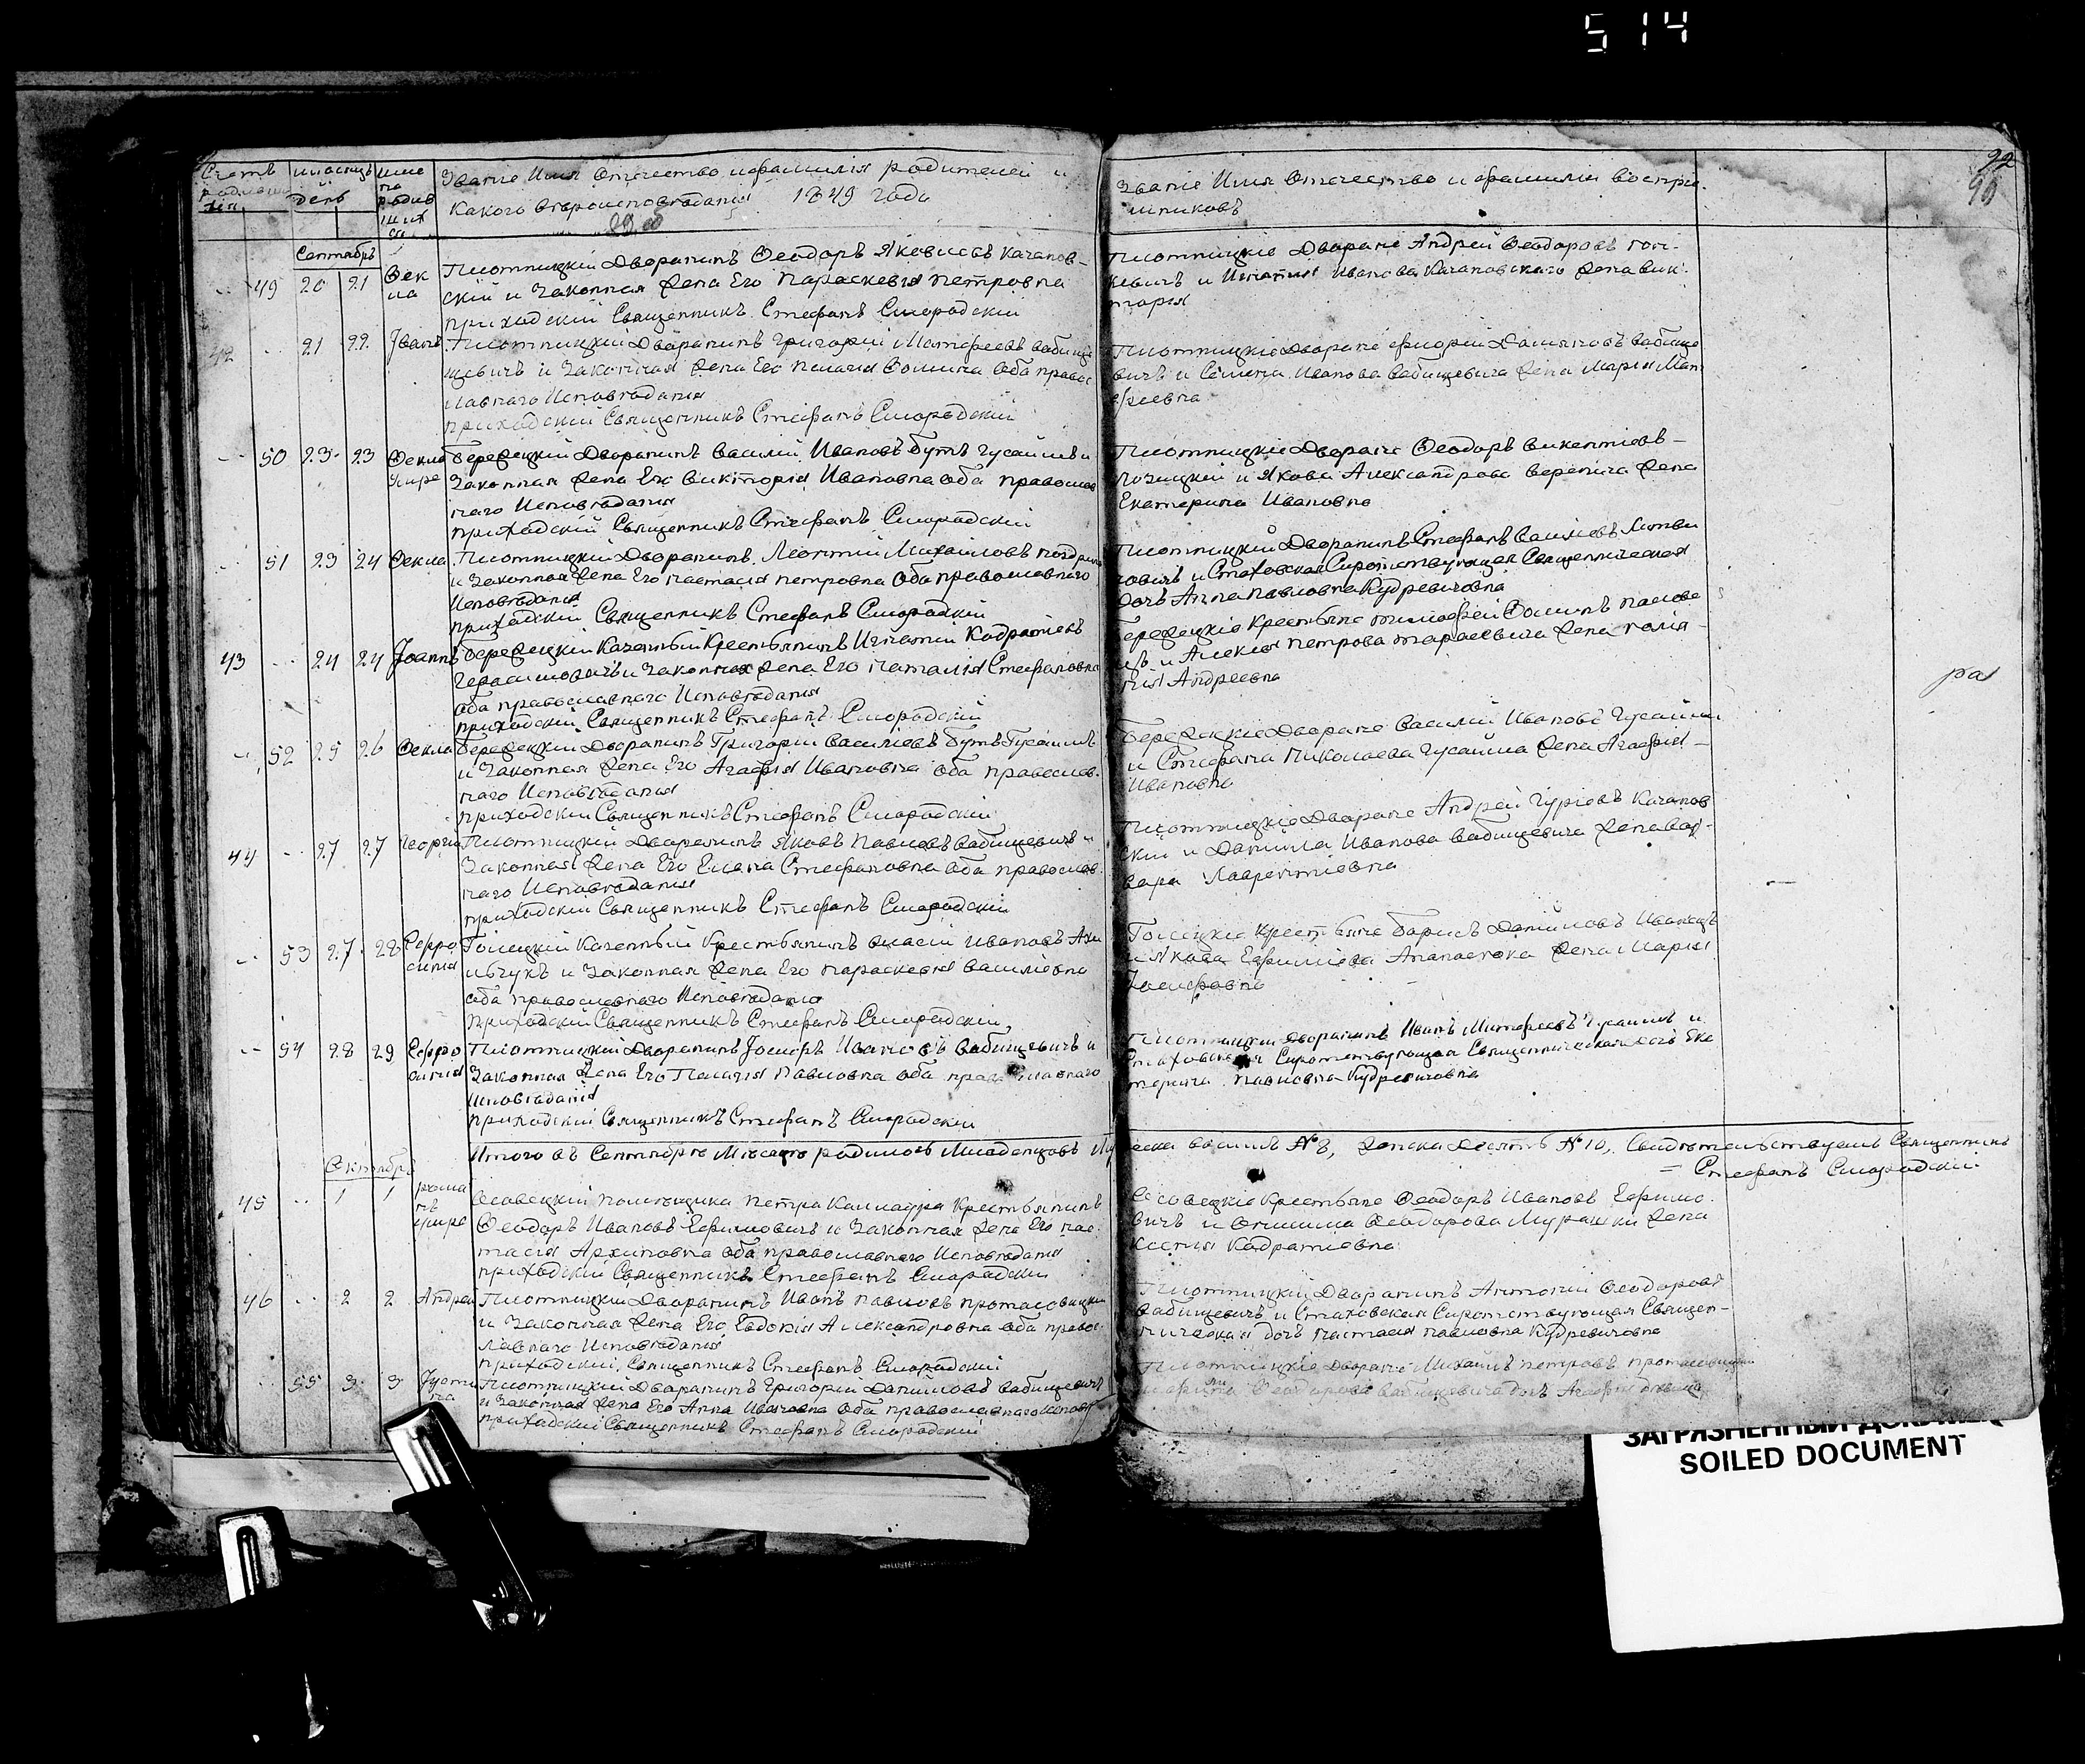 514
22
90
Счетъ родившихся
мѣсяцъ день
Звание Имя Отечество и фамилія родителей и
Какого вѣроисповѣданія 1849 года
Звание Имя Отечество и фамилія воспрі-
емниковъ
Сентябрь
49 20 21 Фек
ла
Плотницкій Дворянинъ Ѳеодоръ Яковлевъ Качанов-
скій и Законная Жена Его Параскевія Петровна
приходскій Священникъ Стефанъ Смородскій
Плотницкіе Дворяне Андрей Ѳеодоровъ
и Игнатія Иванова Качановскаго Жена Вик-
торія
42 21 22 Іванъ
Плотницкій Дворянинъ Григорій Матфеевъ Вабище
щевичъ и Законная Жена Его Пелагія Ѳомина оба правос
лавнаго Исповѣданія
приходскій Священникъ Стефанъ Смородскій
Плотницкіе Дворяне Вабище
вичъ и Семена Иванова Вабищевича Жена Марія Мат
феевна
50 23 23 Ѳекла
умре
Бережецкій Дворянинъ Василій Ивановъ Бутъ Гусаимъ и
Законная Жена Его Викторія Ивановна оба православ
наго Исповѣданія
приходскій Священникъ Стефанъ Смородскій
Плотницкіе Дворяне Ѳеодоръ Викентіевъ
и Якова Александрова Веренича Жена
Екатерина Ивановна
51 23 24 Ѳекла
Плотницкій Дворянинъ Леонтій Михайловъ
и Законная Жена Его Настасія Петровна оба православнаго
Исповѣданія
приходскій Священникъ Стефанъ Смородскій
Плотницкій Дворянинъ Стефанъ Василіевъ Литви
новичъ и Стаховская Сиротствующая Священническая
дочь Анна Павловна Кудревичовна
43 24 24 Іоаннъ
Бережецкій Казенный Крестьянинъ Игнатій Кодратіевъ
Герасимовичъ и Законная Жена Его Наталія Стефановна
оба православнаго Исповѣданія
приходскій Священникъ Стефанъ Смородскій
Бережецкіе Крестьяне Тимофей Ѳоминъ
и Алексія Петрова Тарасевича Жена
Андреевна
ра
52 25 26 Ѳекла
Бережецкій Дворянинъ Григорій Василіевъ Бутъ Гусаимъ
и Законная Жена Его Агафія Ивановна оба православ
наго Исповѣданія
приходскій Священникъ Стефанъ Смородскій
Бережецкіе Дворяне Василій Ивановъ Гусаимъ
и Стефана Николаева Гусаима Жена Агафія
Ивановна
44 27 27 Георгій
Плотницкій Дворянинъ Яковъ Павловъ Вабищевичъ и
Законная Жена Его Елена Стефановна оба православ
наго Исповѣданія
приходскій Священникъ Стефанъ Смородскій
Плотницкіе Дворяне Андрей Гуріевъ Качанов
скій и Даниила Иванова Вабищевича Жена Вар-
вара Лаврентіевна
53 27 28 Ефро
синія
Казенный Крестьянинъ Ивановъ
и Законная Жена Его Параскевія Василіевна
оба православнаго Исповѣданія
приходскій Священникъ Стефанъ Смородскій
Крестьяне Борисъ Даніиловъ
и Якова Ефиміева Жена Марія
Іосифовна
54 28 29 Ефро
синія
Плотницкій Дворянинъ Іосифъ Ивановъ Вабищевичъ и
Законная Жена Его Пелагія Павловна оба православнаго
Исповѣданія
приходскій Священникъ Стефанъ Смородскій
Плотницкій Дворянинъ Иванъ Матфеевъ Гусаимъ и
Стаховская Сиротствующая Священническая дочь Ека
терина Павловна Кудревичовна
Итого въ Сентябрѣ Мѣсяцѣ родилось Младенцовъ Му
жеска восемь № 8, Женска Десять № 10, Свидѣтельствуетъ Священникъ
Стефанъ Смородскій
Октябрь
45 1 1 рома
нъ
умре
Помѣщика Петра Крестьянинъ
Ѳеодоръ Ивановъ Ефимовичъ и Законная Жена Его Нас-
тасія Архиповна оба православнаго Исповѣданія
приходскій Священникъ Стефанъ Смородскій
Крестьяне Ѳеодоръ Ивановъ Ефимо
вичъ и Онисима Ѳеодорова Мурашки Жена
Ксенія Кодратіевна
46 2 2 Андрей
Плотницкій Дворянинъ Иванъ Павловъ Протасовицкій
и Законная Жена Его Евдокія Александровна оба правос-
лавнаго Исповѣданія
приходскій Священникъ Стефанъ Смородскій
Плотницкій Дворянинъ Антоній Ѳеодоровъ
Вабищевичъ и Стаховская Сиротствующая Священ-
ническая дочь Настасія Павловна Кудревичовна
55 3 3 Іусти
на
Плотницкій Дворянинъ Григорій Даниловъ Вабищевичъ
и Законная Жена Его Анна Ивановна оба православнаго Исповѣд
приходскій Священникъ Стефанъ Смородскій
Плотницкіе Дворяне Михаилъ Петровъ Протасовицкій
Ѳеодорова Вабищевича дочь Агафія
ЗАГРЯЗНЕННЫЙ ДОКУМЕНТ
SOILED DOCUMENT